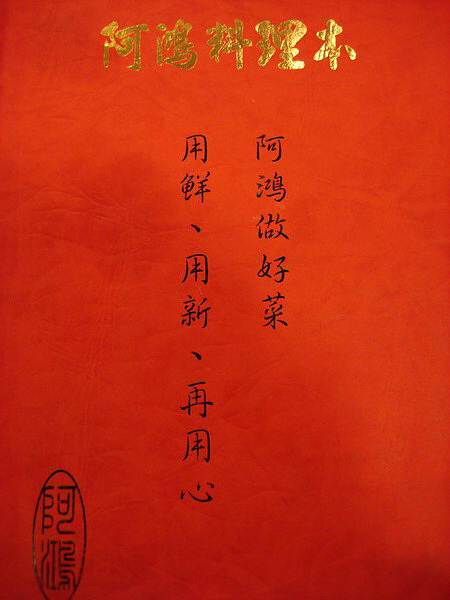 阿鴻料理本
阿鴻做好菜
用鮮、用新、再用心
阿鴻